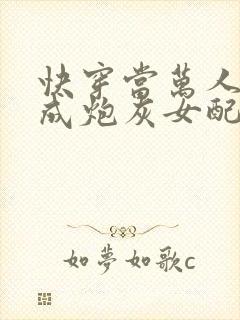 快穿當萬人
成炮灰女配
如夢如歌c